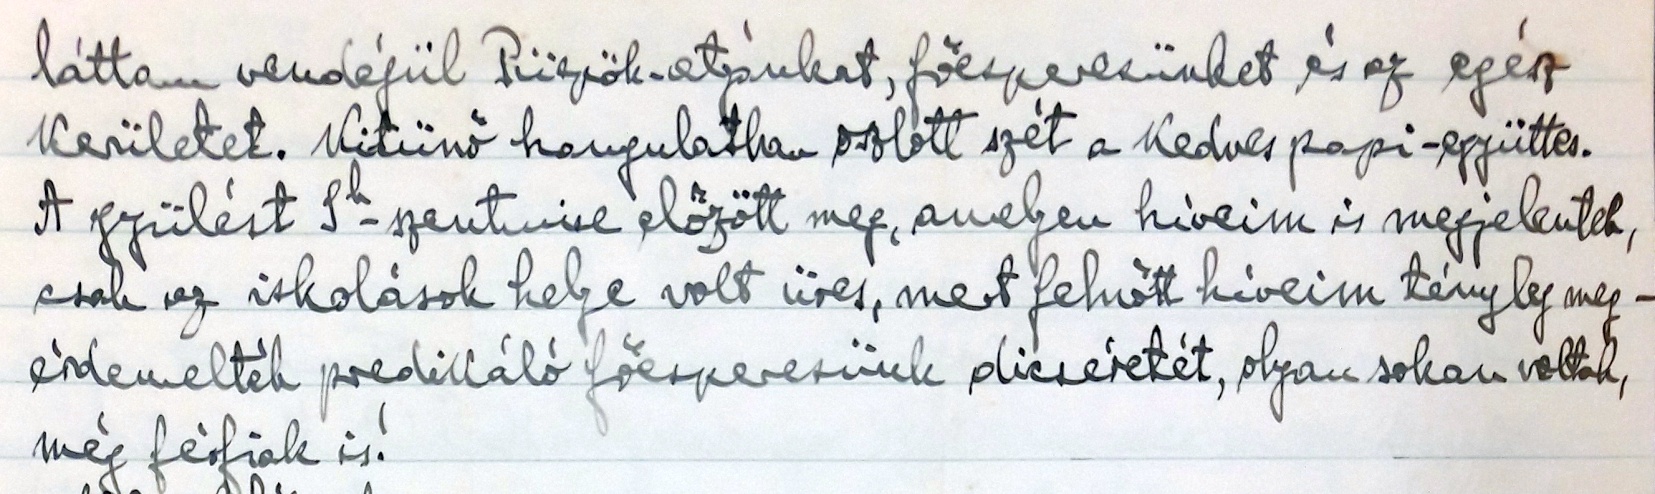 láttam vendégül Püspök-atyánkat, főesperesünket és az egész
kerületet. Kitünő hangulatban oszlott szét a kedves papi-együttes.
A gyülést 9h-szentmise előzött meg, amelyen híveim is megjelentek,
csak az iskolások helye volt üres, mert felnőtt híveim tényleg meg-
érdemelték predikáló főesperesünk dicséretét, olyan sokan voltak,
még férfiak is!